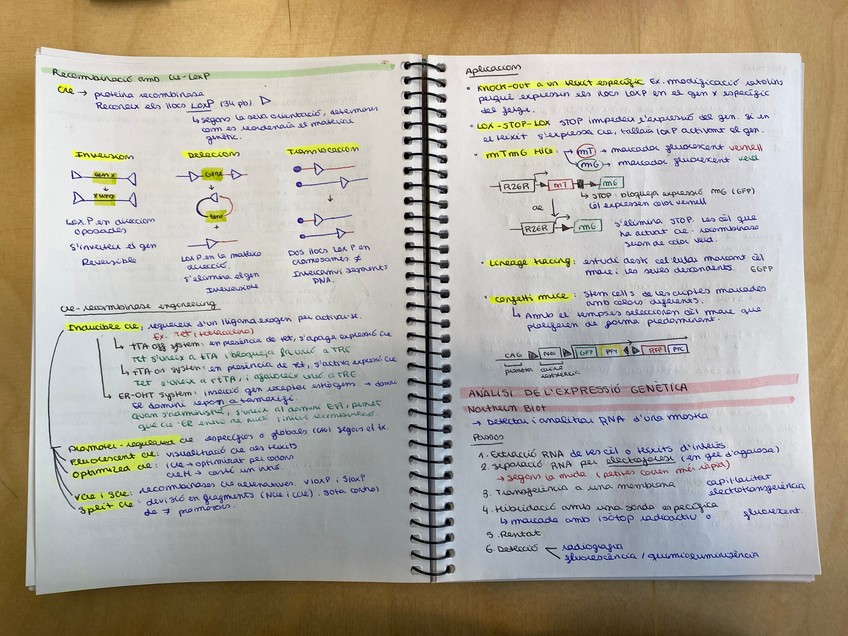 Recombinació amb Cre-LoxP
Cre → proteïna recombinasa
Reconeix els llocs LoxP (34 pb)
↳ segons la seva orientació, determinen
com es reordenarà el material
genètic.
Inversion
Gen x
x neg
LoxP en direccions
oposades
S'inverteix el gen
Reversible
Delecions
Gen x
Gen x
LoxP en la mateixa
direcció.
S'elimina el gen
Irreversible
Translocation
Dos llocs LoxP en
cromosomes ≠
Intercanvi segments
DNA.
Cre-recombinase engineering
Inducible Cre, requereix d'un lligand exogen per activar-se.
Ex. Tet (tetraciclina)
↳ tTA off system: en presència de tet, s'apaga expressió Cre
Tet s'uneix a tTA i bloqueja la unió a TRE
↳ rTA on system: en presència de tet, s'activa expressió Cre
Tet s'uneix a rtTA, i afavoreix unió a TRE.
↳ ER-OHT system: inserció gen receptor estrògens → domini
ER domini respon a tamoxifè.
quan s'administra, s'uneix al domini ER, permet
que Cre-ER entri al nucli i iniciï recombinació.
Promoter-regulated Cre específics o globals (CAG) segons el tx.
Fluorescent Cre: visualització Cre als teixits
Optimized Cre: iCre → optimitzat per codons
CreM → conté un intró
VCre i SCre: recombinases Cre alternatives. VloxP i SloxP
Split Cre: divisió en fragments (NCre i CCre). Sota control
de ≠ promotors.
Aplicacions
• Knock-out a un teixit específic Ex. modificació ratolins
perquè expressin els llocs LoxP en el gen x específic
del fetge.
• LOX-STOP-LOX STOP impedeix l'expressió del gen. Si en
el teixit s'expressa Cre, tallarà loxP activant el gen.
• mTmG Mice: → mT → marcador fluorescent vermell
mG → marcador fluorescent verd
R26R mT mG
↳ STOP: bloqueja expressió mG (GFP)
Cèl expressen color vermell
Cre
R26R mG
S'elimina STOP. Les cèl que
ha activat Cre-recombinase
seran de color verd.
• Lineage tracing: estudi destí cel·lular marcant cèl
mare i les seves descendents. EGFP
• Confetti mice: stem cells de les criptes marcades
amb colors diferents.
↳ Amb el temps es seleccionen cèl mare que
proliferen de forma predominant.
CAG Neo GFP YFP RFP CFP
promotor
resistència
ANÀLISI DE L'EXPRESSIÓ GENÈTICA
Northern Blot
→ Detectar i analitzar RNA d'una mostra
Passos
1. Extracció RNA de les cèl o teixits d'interès
2. Separació RNA per electroforesi (en gel d'agarosa)
→ segons la mida (petites corren més ràpid)
3. Transferència a una membrana capil·laritat
electrotransferència
4. Hibridació amb una sonda específica
↳ marcada amb isòtop radioactiu o fluorescent.
5. Rentat
6. Detecció radiografia
fluorescència / quimioluminiscència